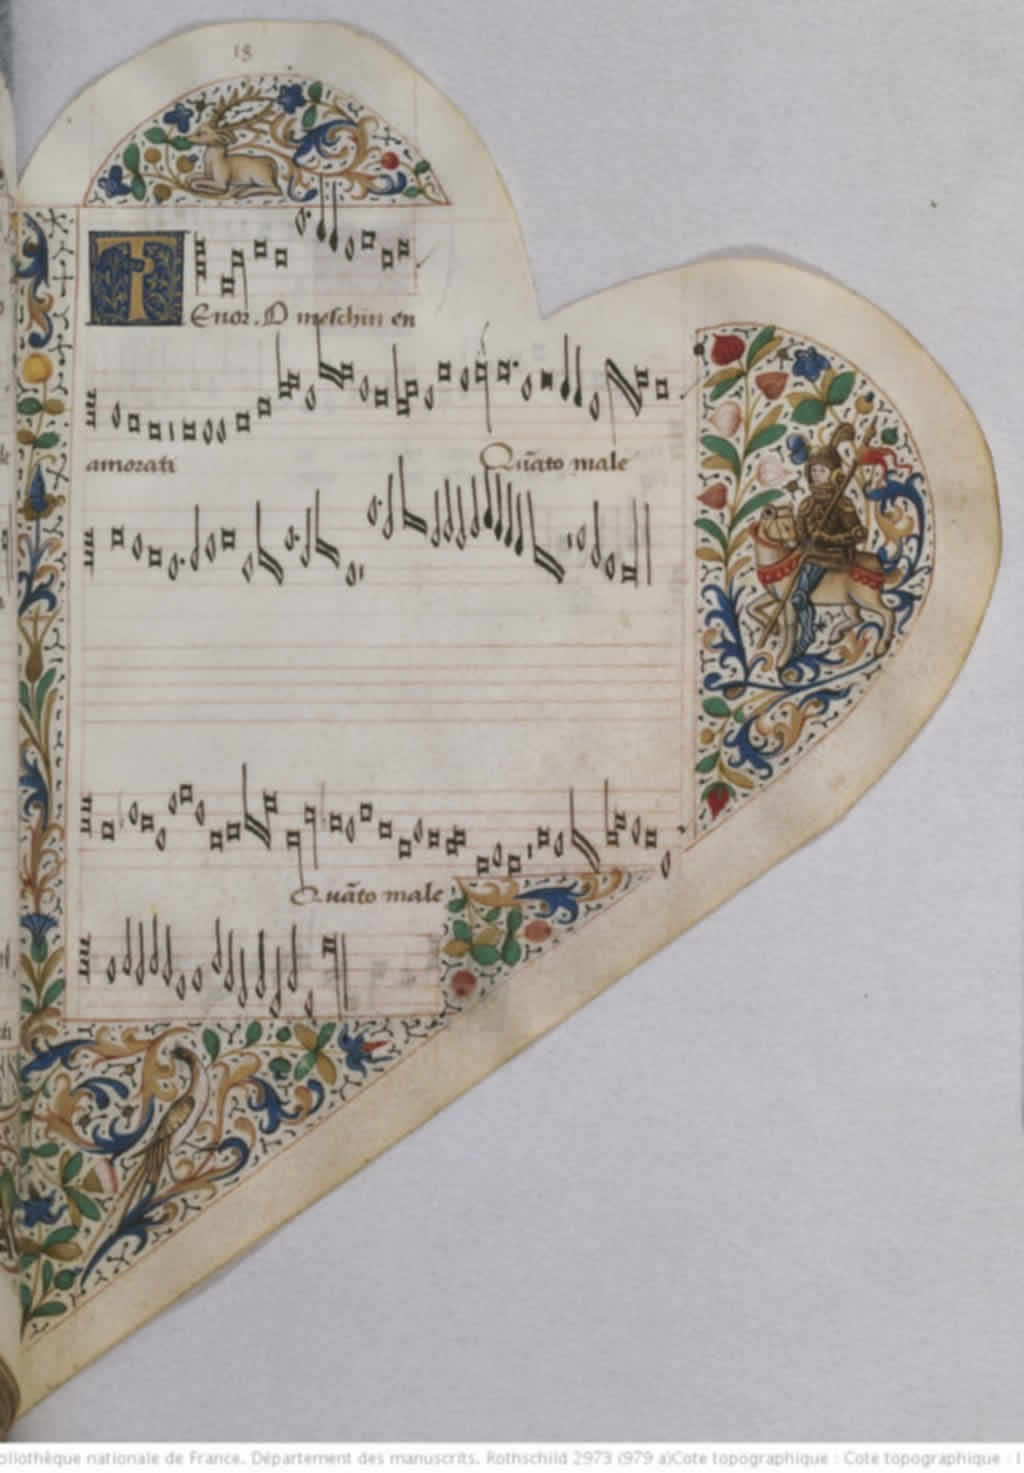 18
Tenor. O meschin en
amorati
Quãto male
Quãto male
bliothèque nationale de France. Département des manuscrits. Rothschild 2973 (979 a)Cote topographique : Cote topographique :